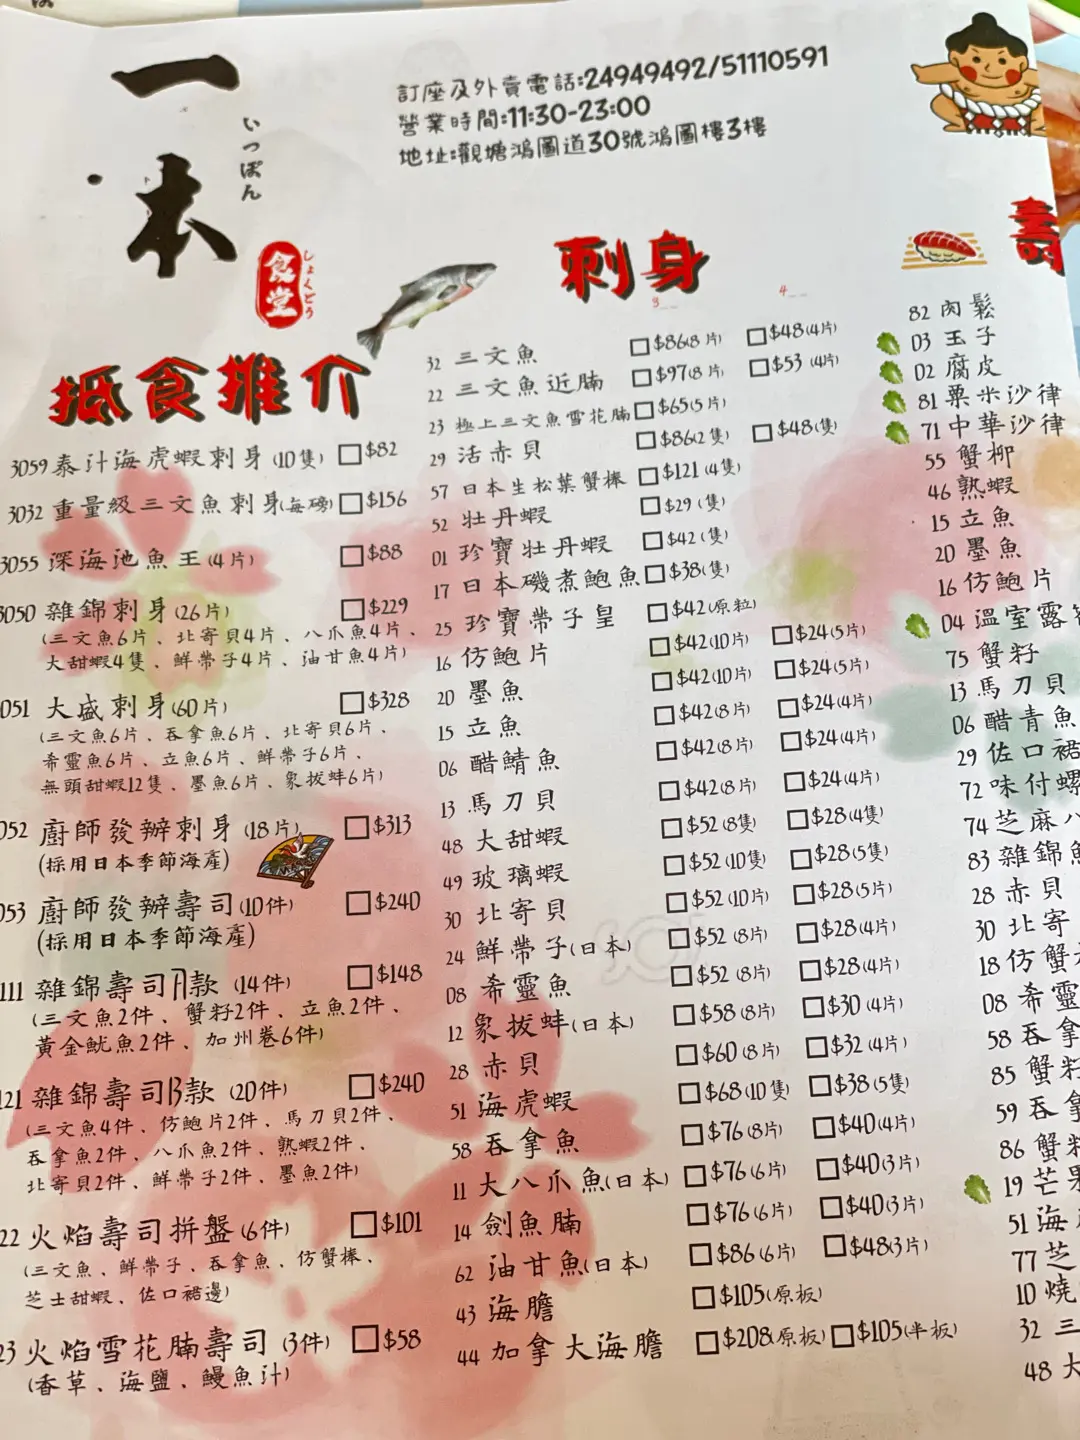 一本
いっぽん
食堂
しょくどう
訂座及外賣電話:24949492/51110591
營業時間:11:30-23:00
地址:觀塘鴻圖道30號鴻圖樓3樓
抵食推介
3059 泰汁海虎蝦刺身(10隻) $82
3032 重量級三文魚刺身(每磅) $156
3055 深海池魚王(4片) $88
3050 雜錦刺身(26片) $229
(三文魚6片、北寄貝4片、八爪魚4片、
大甜蝦4隻、鮮帶子4片、油甘魚4片)
051 大盛刺身(60片) $328
(三文魚6片、吞拿魚6片、北寄貝6片、
希靈魚6片、立魚6片、鮮帶子6片、
無頭甜蝦12隻、墨魚6片、象拔蚌6片)
052 廚師發辦刺身(18片) $313
(採用日本季節海產)
053 廚師發辦壽司(10件) $240
(採用日本季節海產)
111 雜錦壽司A款(14件) $148
(三文魚2件、蟹籽2件、立魚2件、
黃金魷魚2件、加州卷6件)
121 雜錦壽司B款(20件) $240
(三文魚4件、仿鮑片2件、馬刀貝2件、
吞拿魚2件、八爪魚2件、熟蝦2件、
北寄貝2件、鮮帶子2件、墨魚2件)
22 火焰壽司拼盤(6件) $101
(三文魚、鮮帶子、吞拿魚、仿蟹棒、
芝士甜蝦、佐口裙邊)
23 火焰雪花腩壽司(3件) $58
(香草、海鹽、鰻魚汁)
刺身
32 三文魚 $86(8片) $48(4片)
22 三文魚近腩 $97(8片) $53(4片)
23 極上三文魚雪花腩 $65(5片)
29 活赤貝 $86(2隻) $48(隻)
57 日本生松葉蟹棒 $121(4隻)
52 牡丹蝦 $29(隻)
01 珍寶牡丹蝦 $42(隻)
17 日本磯煮鮑魚 $38(隻)
25 珍寶帶子皇 $42(原粒)
16 仿鮑片 $42(10片) $24(5片)
20 墨魚 $42(10片) $24(5片)
15 立魚 $42(8片) $24(4片)
06 醋鯖魚 $42(8片) $24(4片)
13 馬刀貝 $42(8片) $24(4片)
48 大甜蝦 $52(8隻) $28(4隻)
49 玻璃蝦 $52(10隻) $28(5隻)
30 北寄貝 $52(10片) $28(5片)
24 鮮帶子(日本) $52(8片) $28(4片)
08 希靈魚 $52(8片) $28(4片)
12 象拔蚌(日本) $58(8片) $30(4片)
28 赤貝 $60(8片) $32(4片)
51 海虎蝦 $68(10隻) $38(5隻)
58 吞拿魚 $76(8片) $40(4片)
11 大八爪魚(日本) $76(6片) $40(3片)
14 劍魚腩 $76(6片) $40(3片)
62 油甘魚(日本) $86(6片) $48(3片)
43 海膽 $105(原板)
44 加拿大海膽 $208(原板) $105(半板)
壽
82 肉鬆
03 玉子
02 腐皮
81 粟米沙律
71 中華沙律
55 蟹柳
46 熟蝦
15 立魚
20 墨魚
16 仿鮑片
04 溫室露
75 蟹籽
13 馬刀貝
06 醋青魚
29 佐口裙
72 味付螺
74 芝麻八
83 雜錦魚
28 赤貝
30 北寄
18 仿蟹
08 希靈
58 吞拿
85 蟹籽
59 吞拿
86 蟹籽
19 芒果
51 海
77 芝
10 燒
32 三
48 大